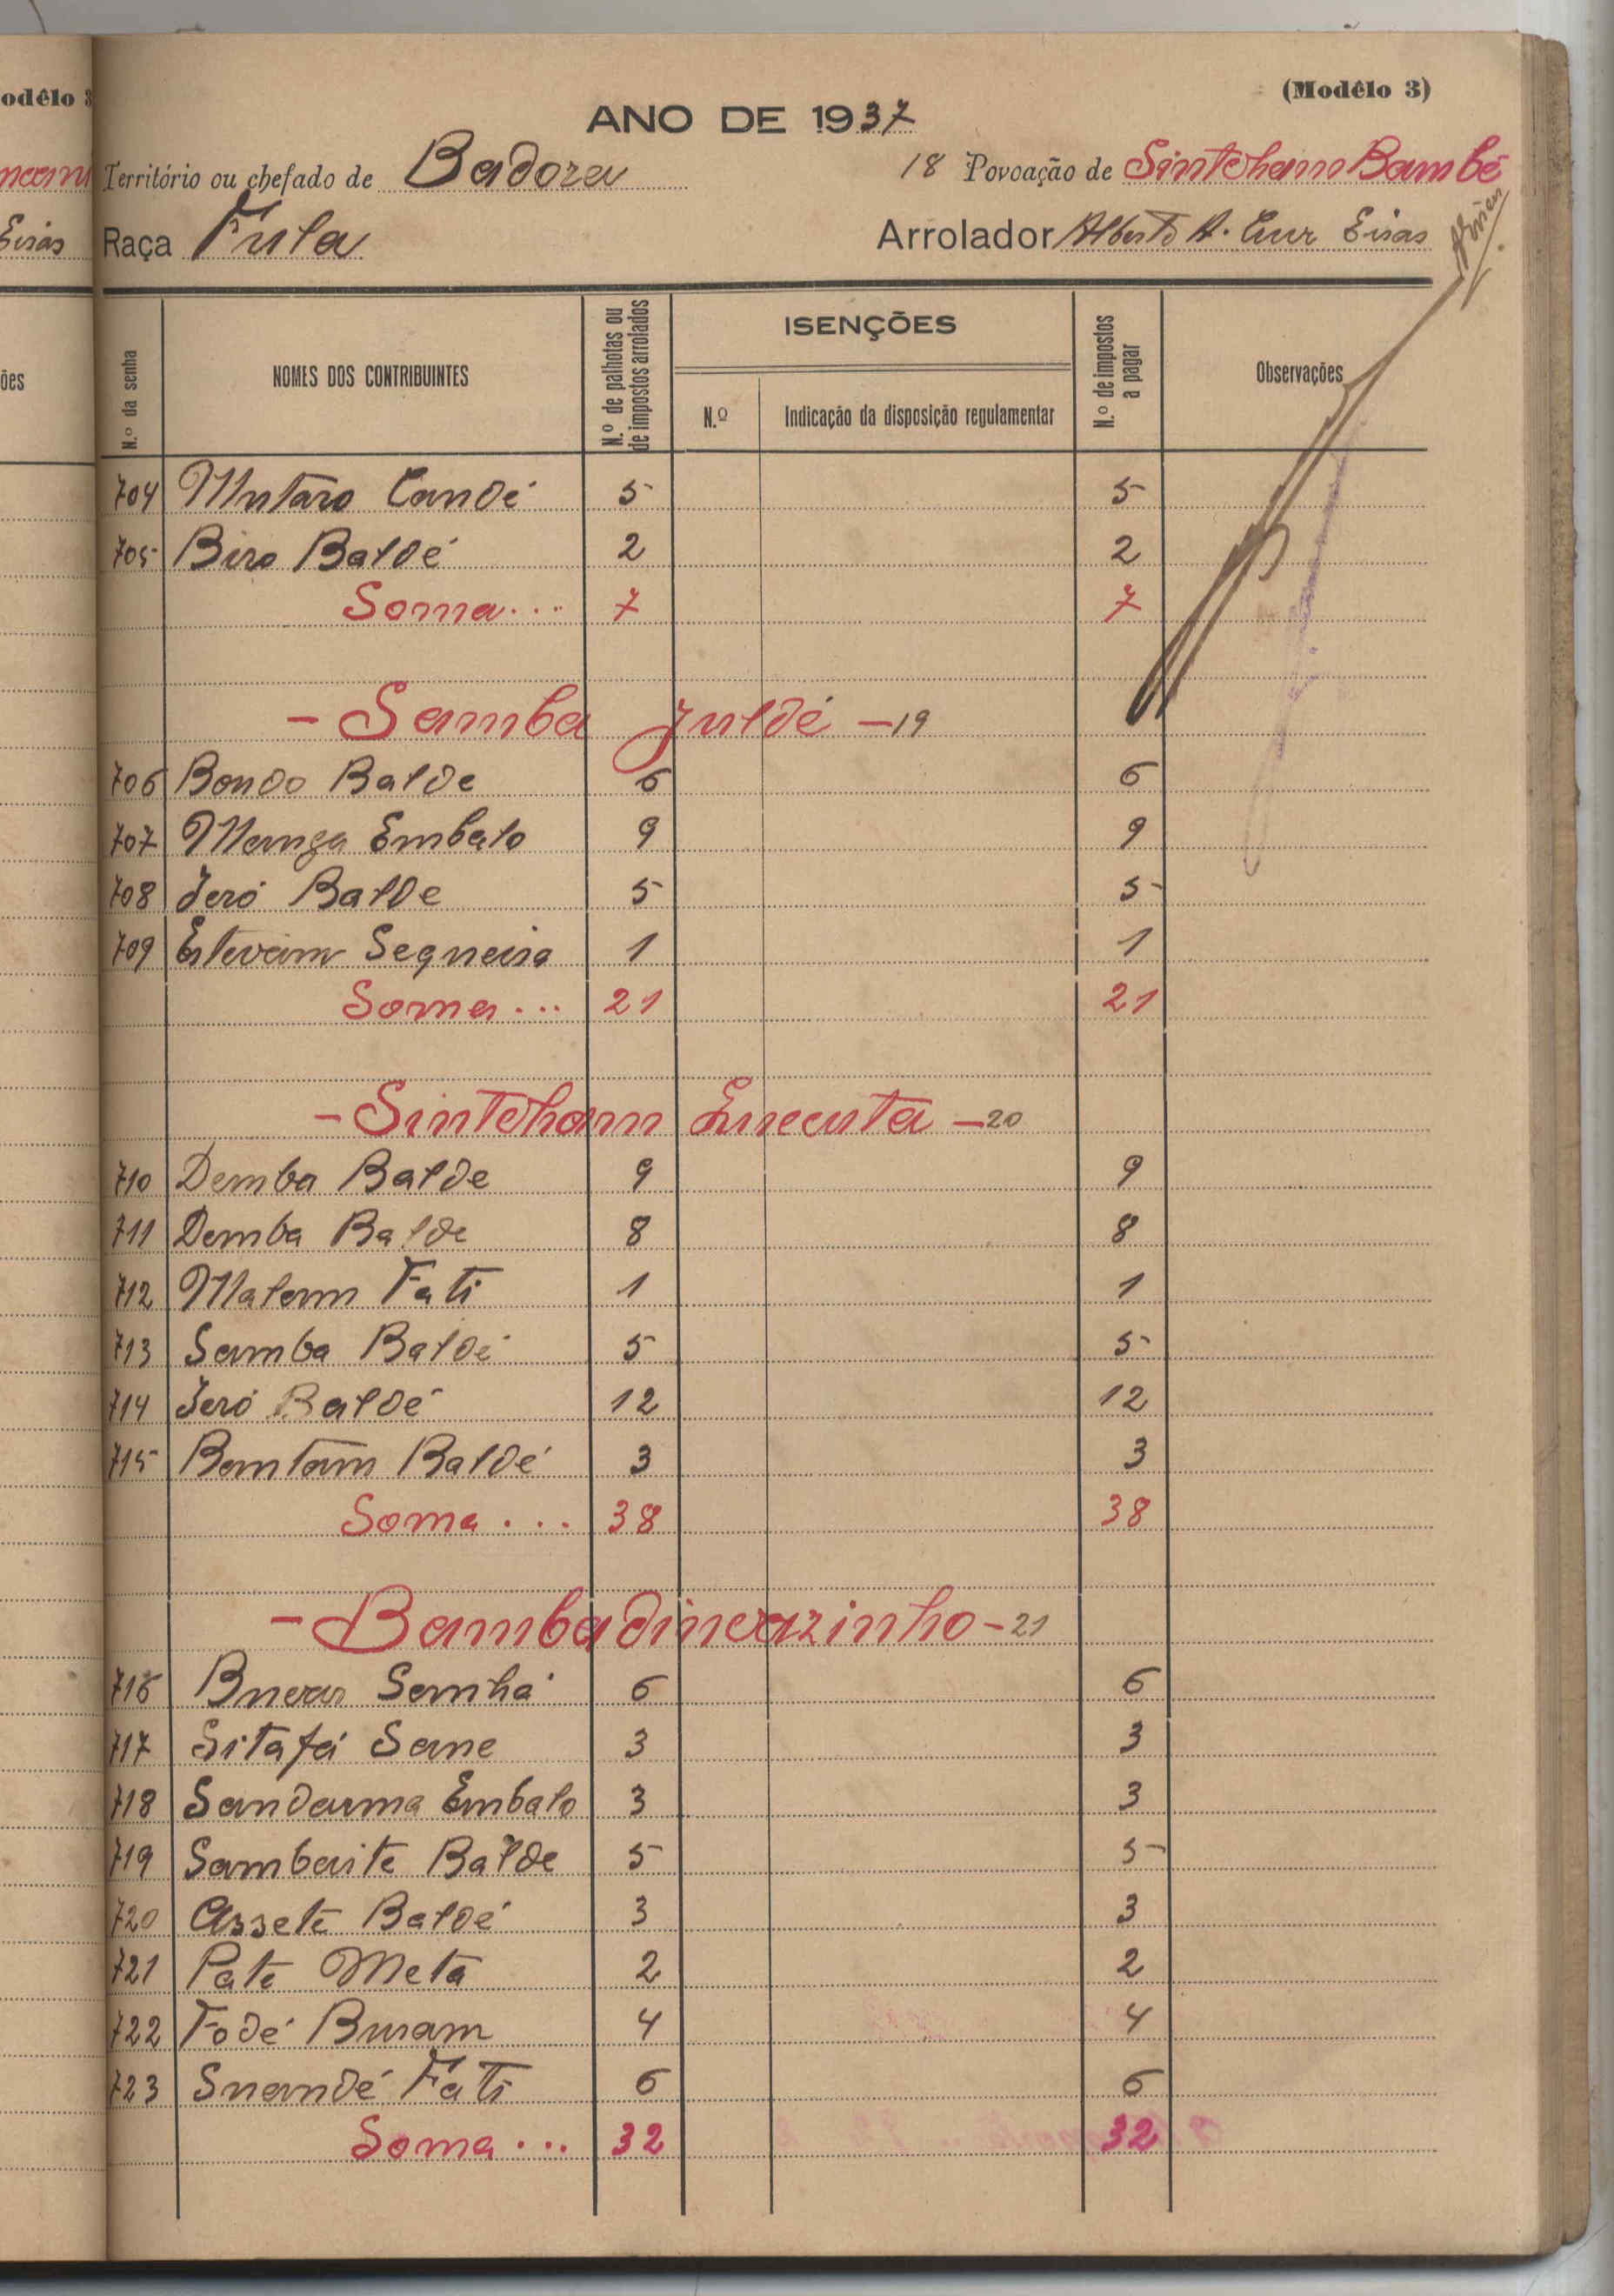 odêlo 3
(Modêlo 3)
ANO DE 1937
Território ou chefado de Badora
18 Povoação de Sintcham Bambé
Eiras
Raça Fula
Arrolador Alberto A. Cruz Eiras
ões
N.º da senha
NOMES DOS CONTRIBUINTES
N.º de palhotas ou de impostos arrolados
ISENÇÕES
N.º
Indicação da disposição regulamentar
N.º de impostos a pagar
Observações
704 Mutaro Candé 5 5
705 Biro Baldé 2 2
Soma... 7 7
- Samba Juldé - 19
706 Bondo Balde 6 6
707 Manga Embalo 9 9
708 Jeró Balde 5 5
709 Estevam Sequeira 1 1
Soma... 21 21
- Sintcham - 20
710 Demba Balde 9 9
711 Demba Balde 8 8
712 Malam Fati 1 1
713 Samba Baldé 5 5
714 Jeró Baldé 12 12
715 Bantam Baldé 3 3
Soma... 38 38
- Bambadincazinho - 21
716 Sanhá 6 6
717 Sitafá Sane 3 3
718 Embalo 3 3
719 Sambaite Balde 5 5
720 Assete Baldé 3 3
721 Pate Meta 2 2
722 Fodé Buram 4 4
723 Suandé Fati 6 6
Soma... 32 32